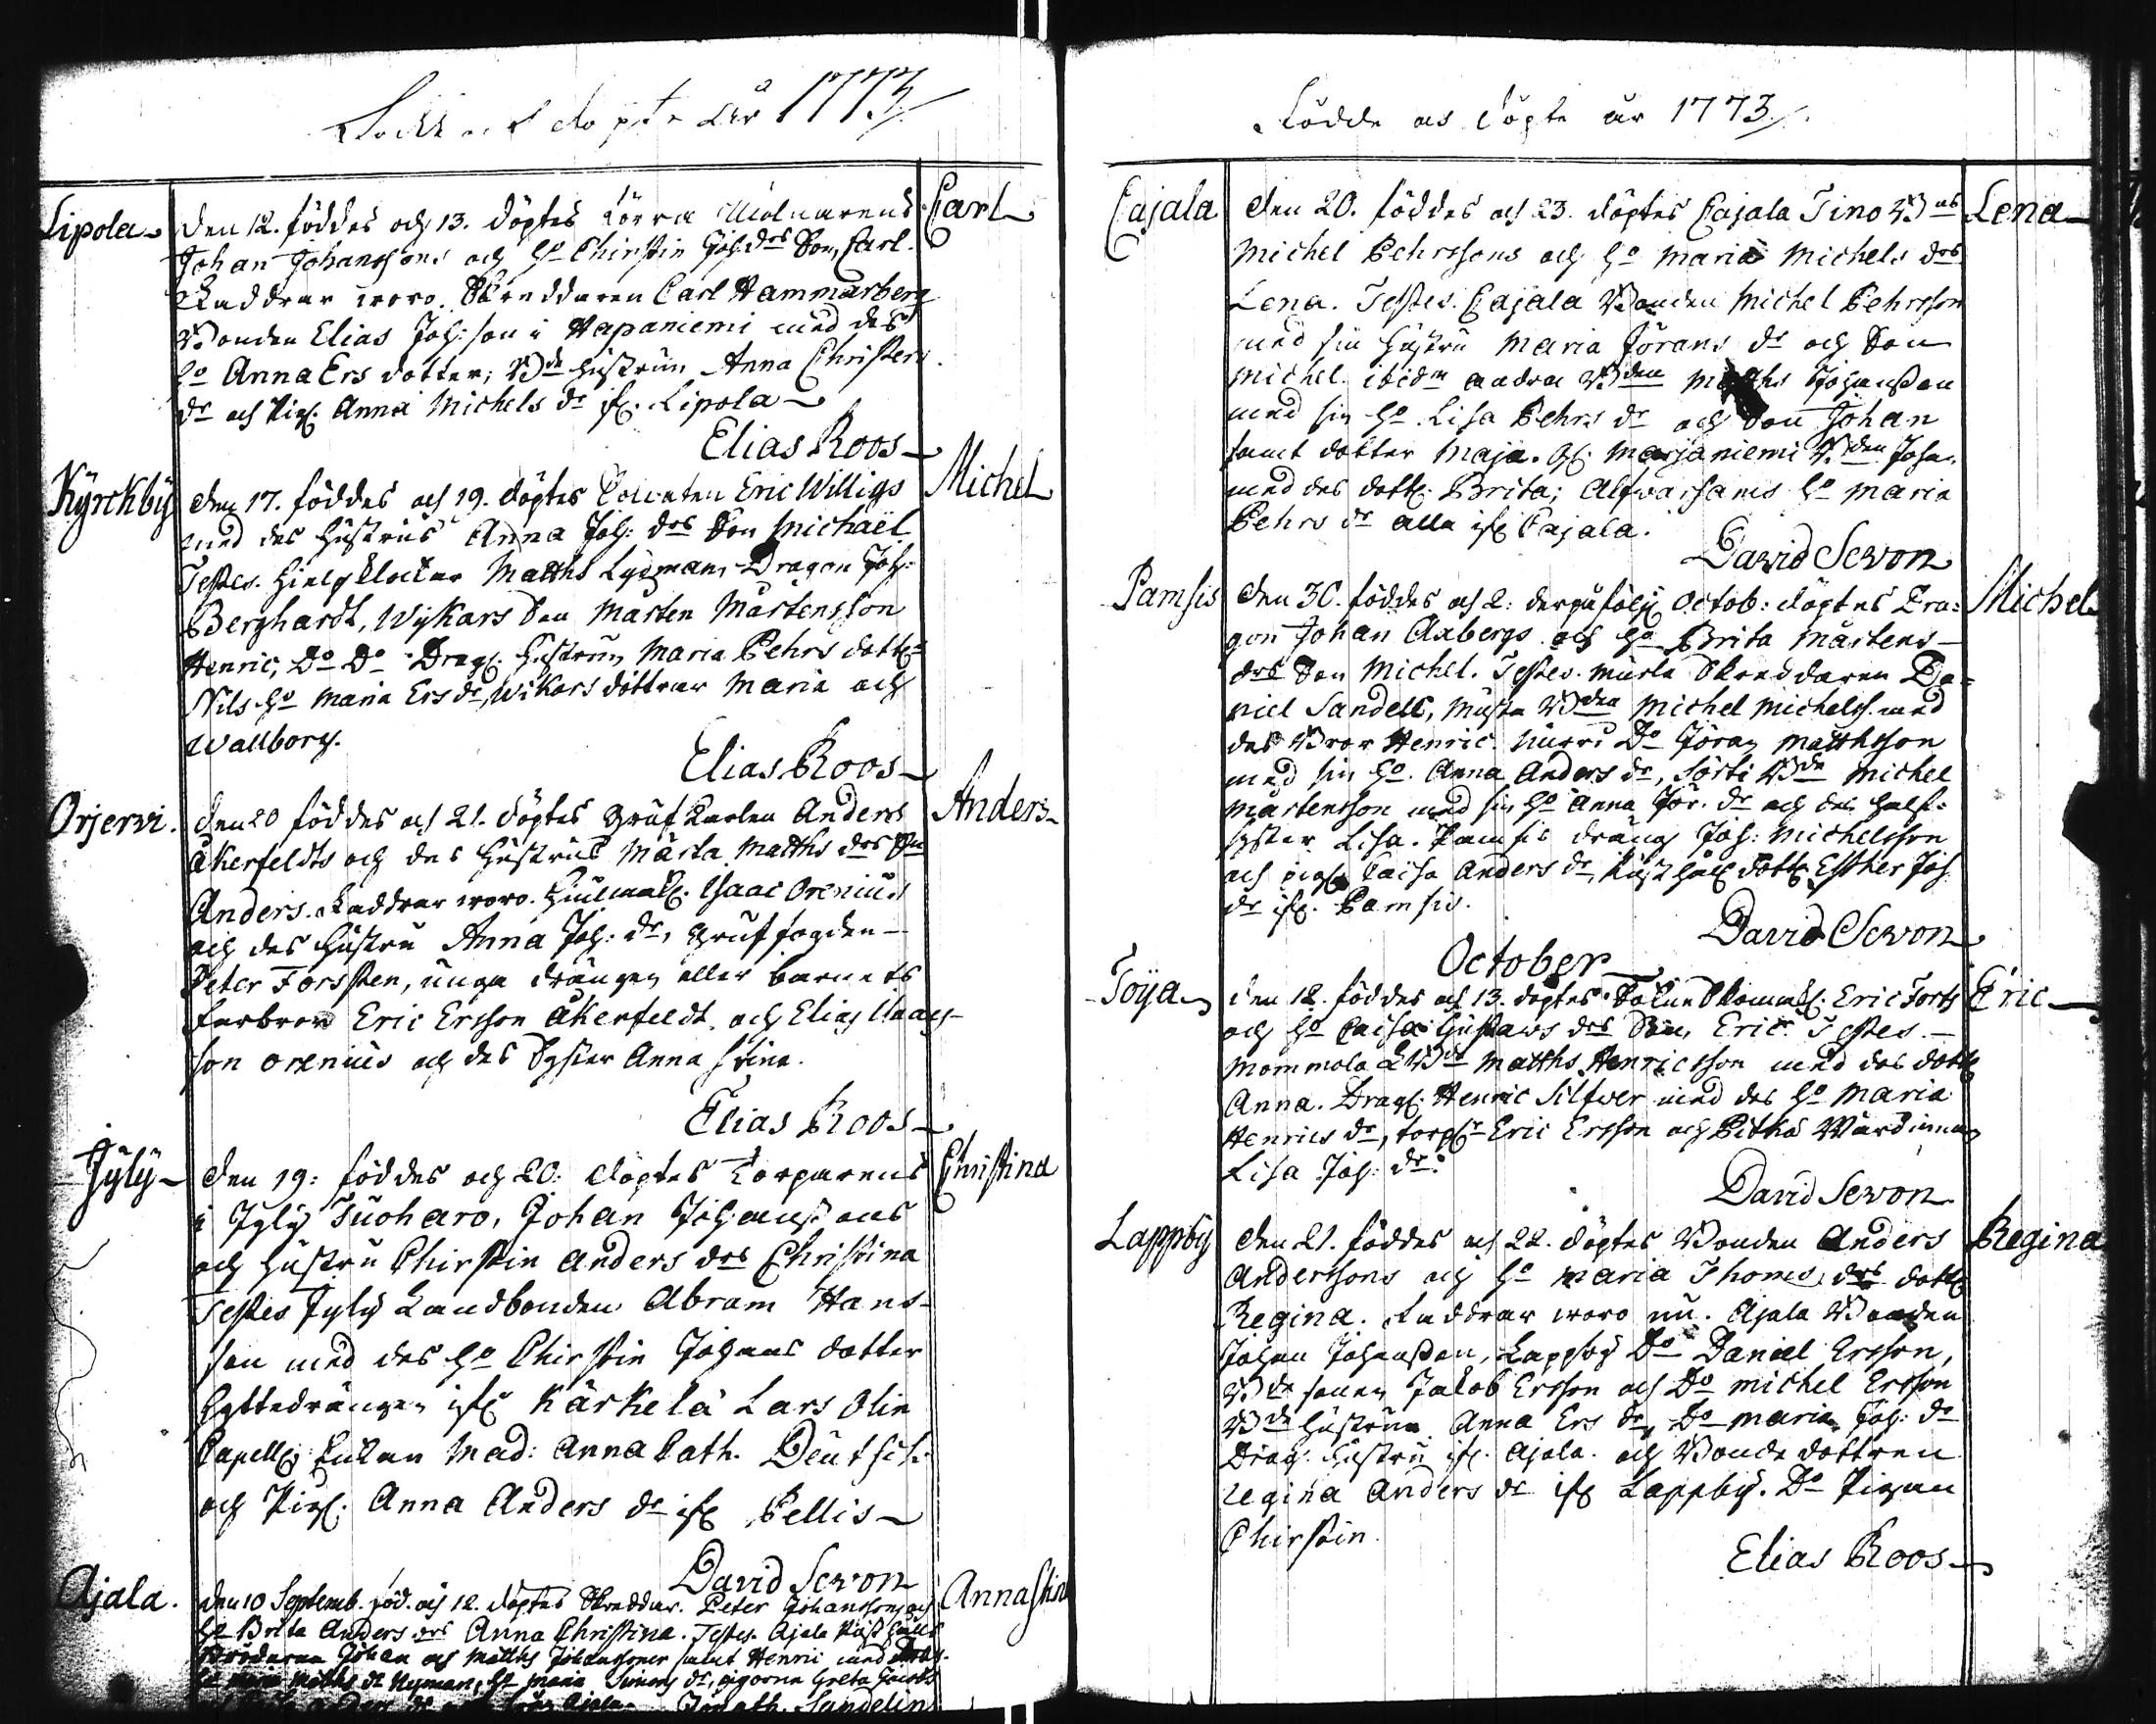 Födde och döpte åhr 1773
Lipola den 12. föddes och 13. döptes Mölnarens Carl
Johan Johanssons och Ho Chirstin Joh:drs Son, Carl.
Faddrar woro. Skreddaren Carl Hammarberg
Bonden Elias Joh:son i Hapaniemi med des
ho Anna Ers dotter; Bde hustrun Anna Christers
dr och Pig. Anna Michels dr ifr. Lipola
Elias Roos
Kyrckby den 17. föddes och 19. döptes Eric Willigs Michel
med des hustrus Anna Joh: drs Son Michaël
Testes. Matths Lydman, Dragon Joh:
Berghardt, Wijkars Son Mårten Mårtensson
Henric, Do Do Drag. hustrun Maria Pehrs dott
Nils ho Maria Ers dr, Wikars döttrar Maria och
Wallborg.
Elias Roos
Orjerwi. den 20 föddes och 21. döptes gruf Karlen Anders Anders
Åkerfeldts och des hustrus Märta Matths drs Son
Anders. Faddrar woro. Isaac Orenius
och des hustru Anna Joh: dr, gruffogden
Peter Forssten, unga drängen eller barnets
farbror Eric Ersson Åkerfeldt och Elias Isaacs
son Orenius och des Syster Anna Stina.
Elias Roos
Jyly den 19: föddes och 20: döptes Torparens Christina
i Jyly Tuoharo, Johan Johanssons
och hustru Chirstin Anders drs Christina
Testes Jyly Landbonden Abram Hans-
son med des ho Chirstin Johans dotter
hyttedrängen ifr Kärkelä Lars Olin
Capell: Enkan Mad: Anna Cath. Deutsch:
och Pig. Anna Anders dr ifr Pellis
David Sevon
Ajala. den 10 Septemb. föd. och 12. döptes Skreddar. Peter Johanssons och Anna Stina
ho Brita Anders drs Anna Christina. Testes. Ajala
Bröderna Johan och Matths Johanssoner samt Henric med
Matths dr Nyman, ho Maria Simons dr, pigorna Greta Jacobs
Ajala Sandelin
Födde och döpte år 1773
Cajala den 20. föddes och 23. döptes Cajala Tino Bds Lena
Michel Pehrssons och ho Maria Michels drs
Lena. Testes. Cajala Bonden Michel Pehrsson
med sin hustru Maria Jörans dr och Son
Michel. ibidm andra Bden Matths Johansson
med sin ho Lisa Pehrs dr och Son Johan
samt dotter Maja. Marjaniemi Bden Joha.
med des dott. Brita; ho Maria
Pehrs dr alla ifr Cajala.
David Sevon
Pamsis den 30. föddes och 2: derpåfölj. Octob: döptes Dra= Michel
gon Johan Axbergs och ho Brita Mårtens
drs Son Michel. Testes. Skreddaren Da=
niel Sandell, Bden Michel Michelss. med
des Bror Henric. Do Jöran Matthsson
med sin ho. Anna Anders dr, Sörti Bde Michel
Mårtensson med sin ho Anna Jör. dr och des half-
syster Lisa. Pamsis dräng Joh: Michelsson
och pig Caisa Anders dr, dott. Esther Joh
dr ifr. Pamsis.
David Sevon
October
Toija den 12. föddes och 13. döptes Eric Forss Eric
och ho Caisa Gustaws drs Son, Eric. Testes.
Mommola Bde Matths Henricsson med des dott
Anna. Drag. Henric Silfwer med des ho Maria
Henrics dr, torp Eric Ersson och Pitkä Wärdinnan
Lisa Joh: dr.
David Sevon
Lappby den 21. föddes och 22. döptes Bonden Anders Regina
Anderssons och ho Maria Thomes drs dott
Regina. Faddrar woro nu. Ajala Bonden
Johan Johansson, Lappby Do Daniel Ersson,
Bde sonen Jakob Ersson och Do Michel Ersson
Bde hustrun Anna Ers dr, Do Maria Joh: dr
Drag: hustru ifr. Ajala. och Bonde dottren
Regina Anders dr ifr Lappby. Do Pigan
Chirstin.
Elias Roos